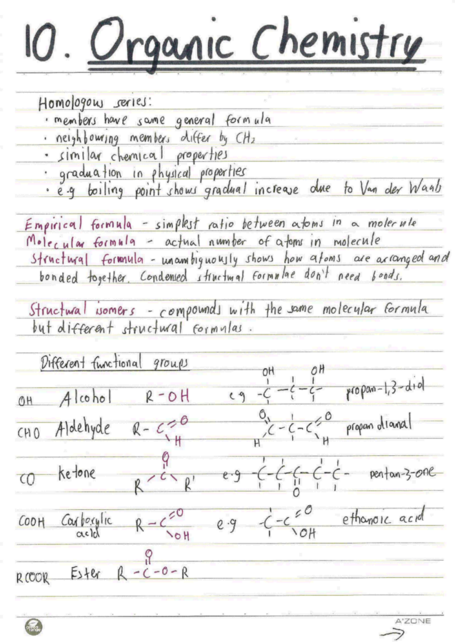 10. Organic Chemistry
Homologous series:
· members have same general formula
· neighbouring members differ by CH₂
· similar chemical properties
· graduation in physical properties
· e.g boiling point shows gradual increase due to Van der Waals
Empirical formula - simplest ratio between atoms in a molecule
Molecular formula - actual number of atoms in molecule
Structural formula - unambiguously shows how atoms are arranged and
bonded together. Condensed structural formulae don't need bonds.
Structural isomers - compounds with the same molecular formula
but different structural formulas.
Different functional groups
OH Alcohol R-OH e.g OH OH -C-C-C- propan-1,3-diol
CHO Aldehyde R-C=O H O C-C-C=O H H propan dianal
CO Ketone O R C R' e.g -C-C-C-C-C- O pentan-3-one
COOH Carboxylic acid R-C=O OH e.g -C-C=O OH ethanoic acid
RCOOR Ester R-C-O-R O
A'ZONE